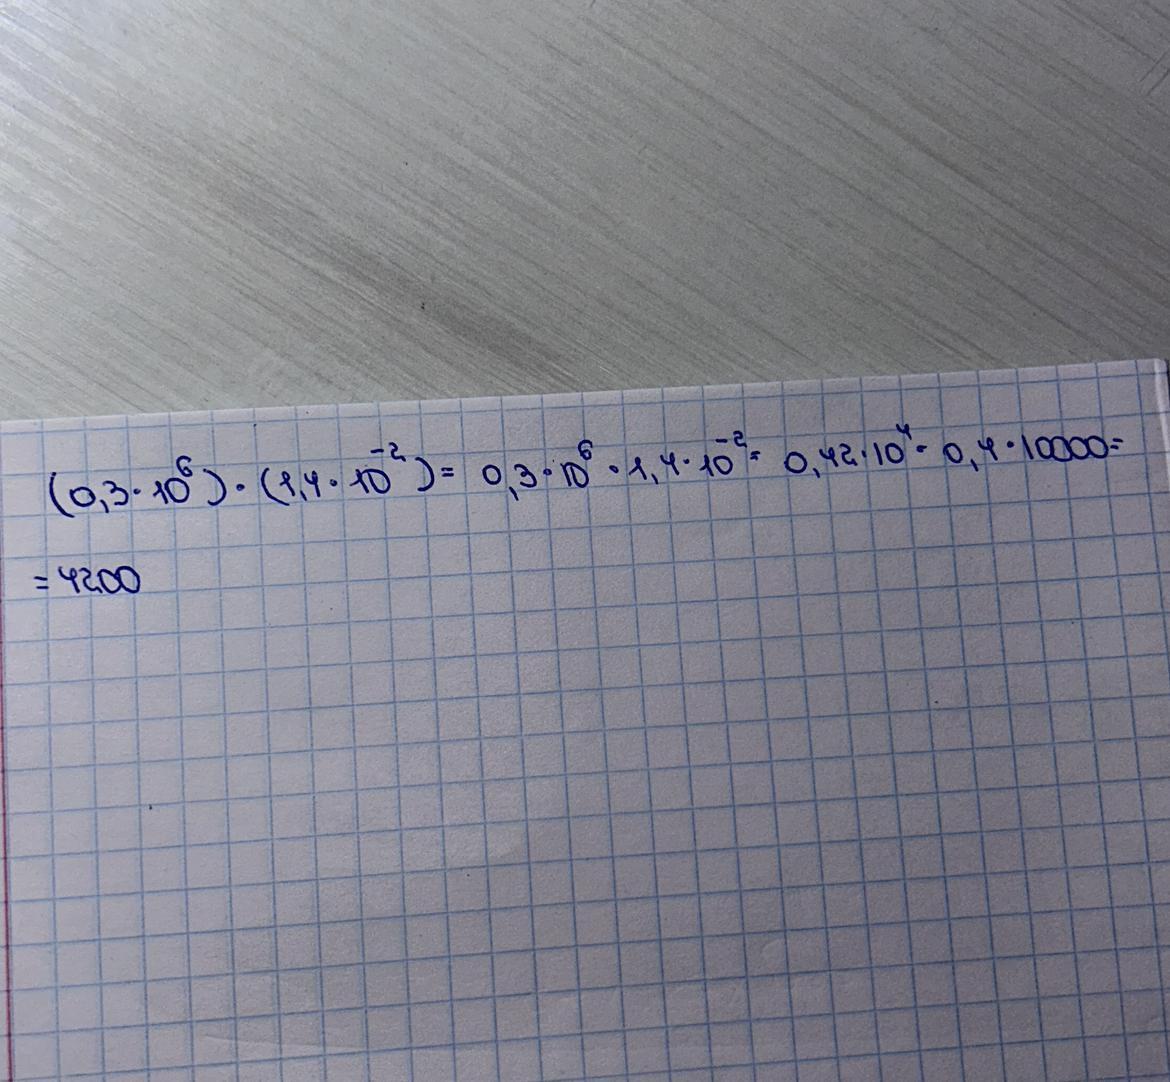 (0,3·10⁶)·(1,4·10⁻²)= 0,3·10⁶·1,4·10⁻²= 0,42·10⁴= 0,4·10000=
=4200